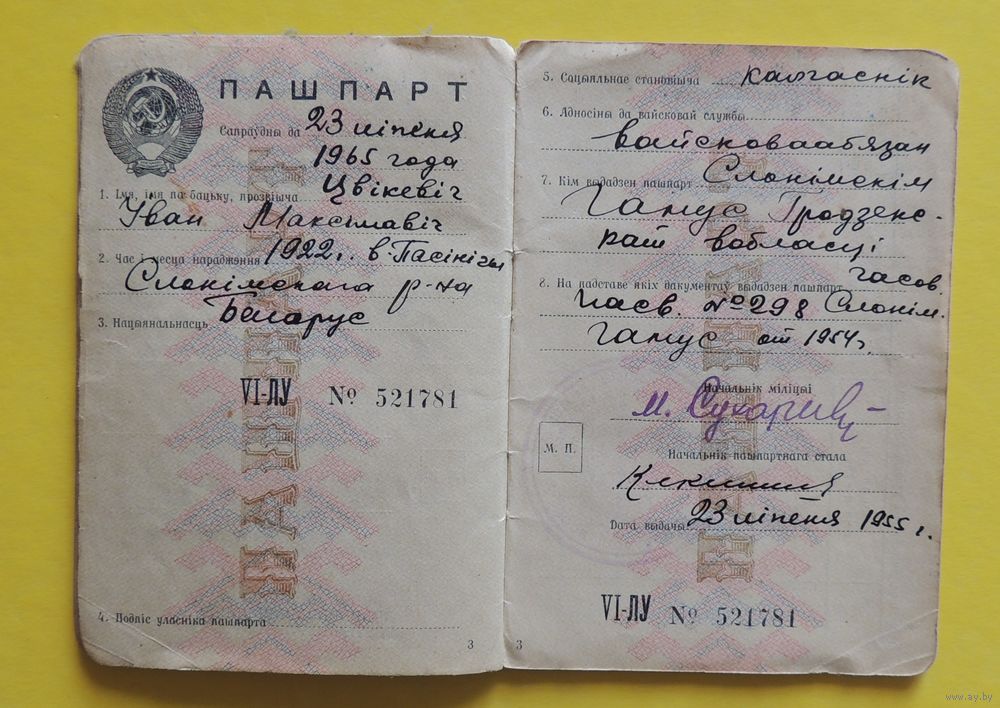 ПАШПАРТ
Сапраўдны да 23 ліпеня
1965 года
1. Імя, імя па бацьку, прозвішча Цвікевіч
Іван Максімавіч
2. Час і месца нараджэння 1922 г. в. Пасінічы
Слонімскага р-на
3. Нацыянальнасць Беларус
VI-ЛУ № 521781
4. Подпіс уласніка пашпарта
3
5. Сацыяльнае становішча калгаснік
6. Адносіны да вайсковай службы
вайсковаабязан
7. Кім выдадзен пашпарт Слонімскім
Гамус Гродзенс-
кай вобласці
8. На падставе якіх дакументаў выдадзен пашпарт часов.
пасв. №298 Слонім.
Гамус от 1954 г.
Начальнік міліцыі
М. П.
Начальнік пашпартнага стала
Дата выдачы 23 ліпеня 1955 г.
VI-ЛУ № 521781
3
www.ay.by